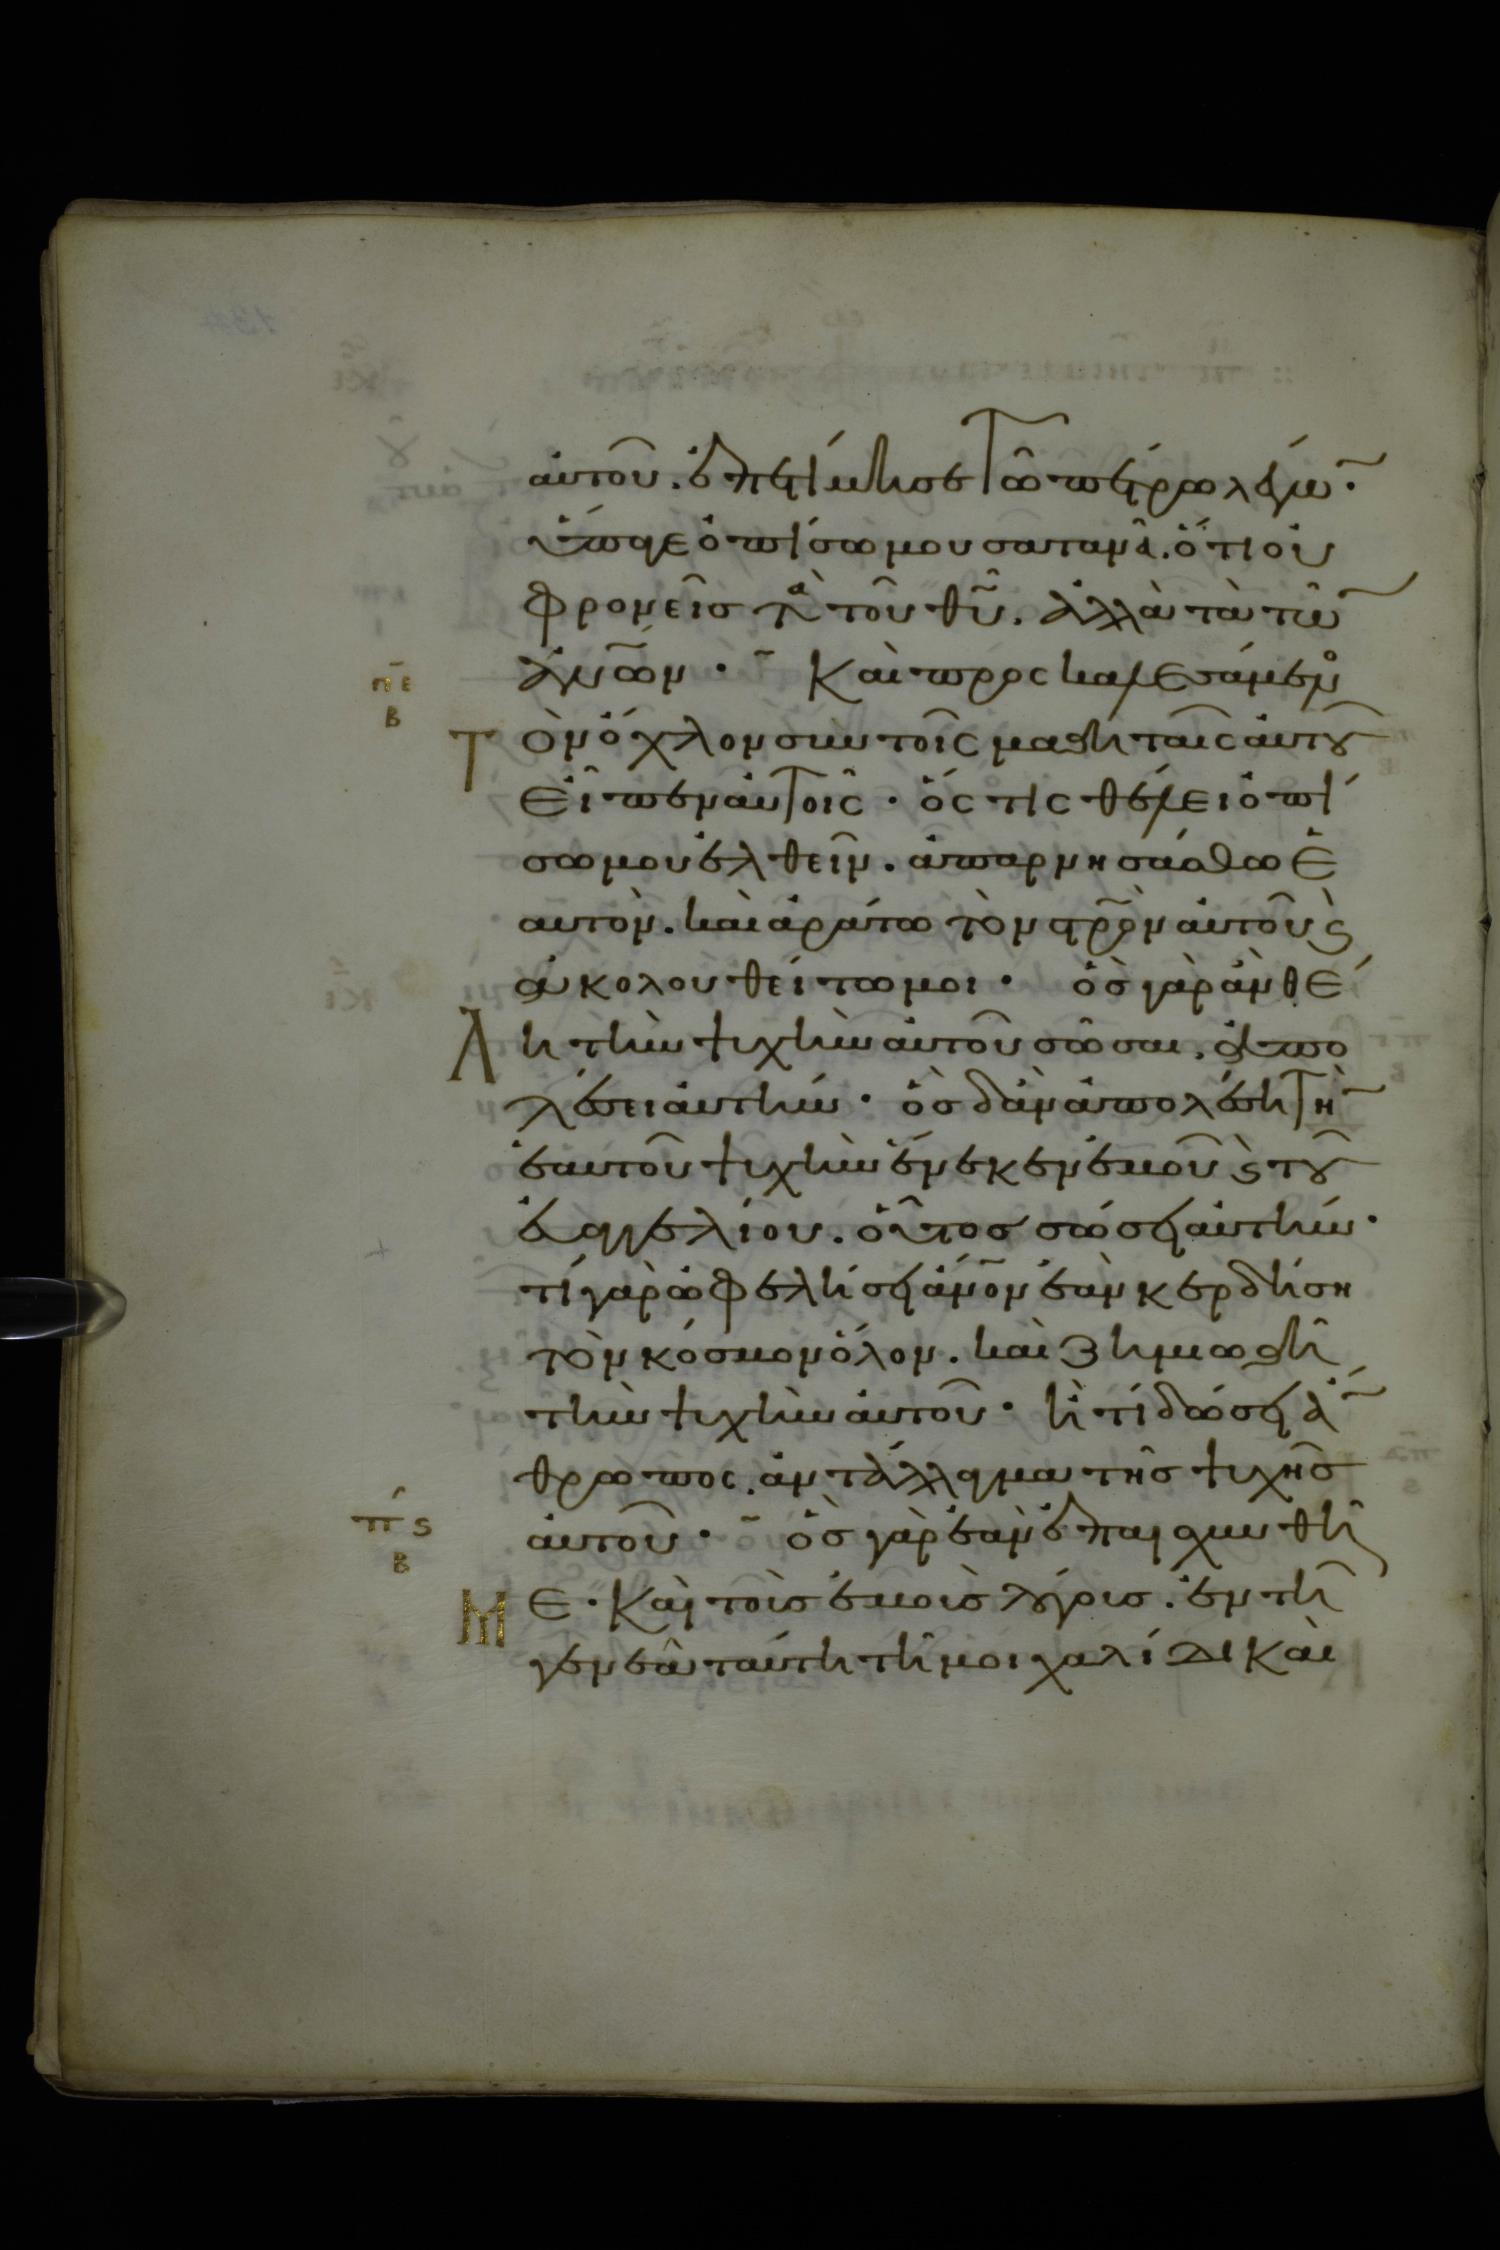 αὐτοῦ. ἐπετίμησε τῶ πέτρω λέγω̅·
ὕπαγε ὀπίσω μου σατανᾶ. ὅτι οὐ
φρονεῖσ τὰ τοῦ θυ̅. ἀλλὰ τὰ τῶ̅
αν̅ων· Καὶ προσκαλεσάμενο
Τὸν ὄχλον σὺν τοῖς μαθηταῖς αὐτοῦ
εἶπεν αὐτοῖς· ὅς τις θέλει ὀπί
σω μου ἐλθεῖν. ἀπαρνησάσθω ἑ
αυτὸν. καὶ ἀράτω τὸν στρ̅ὸν αὐτοῦ ϛ
ἀκολουθείτω μοι· ὃσ γὰρ ἂν θέ
Λη τὴν ψυχὴν αὐτοῦ σῶσαι. ἀπο
λέσει αυτήν· ὃσ δἂν ἀπολέση τὴ̅
ἑαυτοῦ ψυχὴν ἕνεκεν ἐμοῦ ϛ τοῦ
εὐαγγελίου. οὗτοσ σώσει αὐτήν·
τί γὰρ ὠφελήσει αν̅ον ἐὰν κερδήση
τὸν κόσμον ὅλον. καὶ ζημιωθῆ
τὴν ψυχὴν αὐτοῦ· ἢ τί δώσει ἄ̅
θρωπος. ἀντάλλαγμα τῆσ ψυχῆσ
αὐτοῦ· ὃσ γὰρ ἐὰν ἐπαισχυνθῆ
Με· Καὶ τοῖσ ἐμοῖσ λόγοισ. ἐν τῆ
γενεᾶ ταύτη τῆ μοιχαλίδι καὶ
πε̅
β
πϛ
β